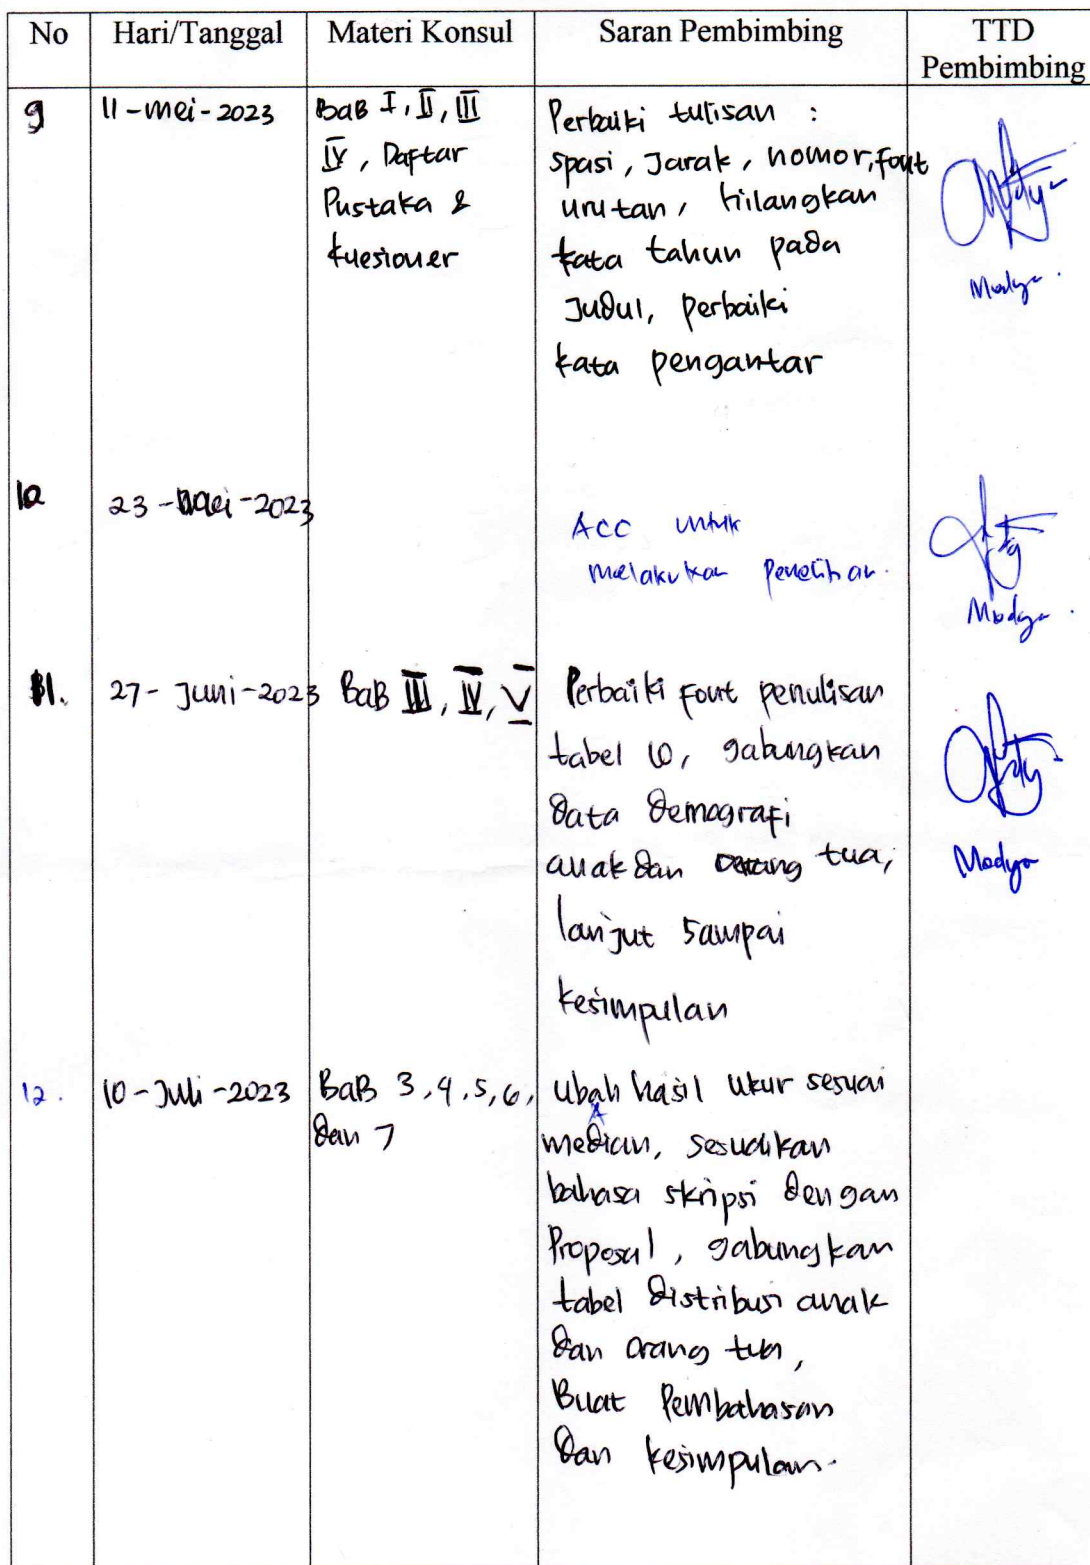 No Hari/Tanggal Materi Konsul Saran Pembimbing TTD Pembimbing
9 11-mei-2023 BaB I, II, III Perbaiki tulisan :
IV, Daftar spasi, Jarak, nomor, font
Pustaka & urutan, hilangkan
kuesioner kata tahun pada
Judul, perbaiki
kata pengantar
Madya.
10 23-Mei-2023 ACC untuk
melakukan penelitian.
Madya.
11. 27-Juni-2023 BaB III, IV, V Perbaiki font penulisan
tabel 10, gabungkan
data demografi
anak dan orang tua,
lanjut sampai
kesimpulan
Madya
12. 10-Juli-2023 BaB 3, 4, 5, 6, Ubah hasil ukur sesuai
dan 7 median, sesuaikan
bahasa skripsi dengan
Proposal, gabungkan
tabel distribusi anak
dan orang tua,
Buat Pembahasan
dan kesimpulan.